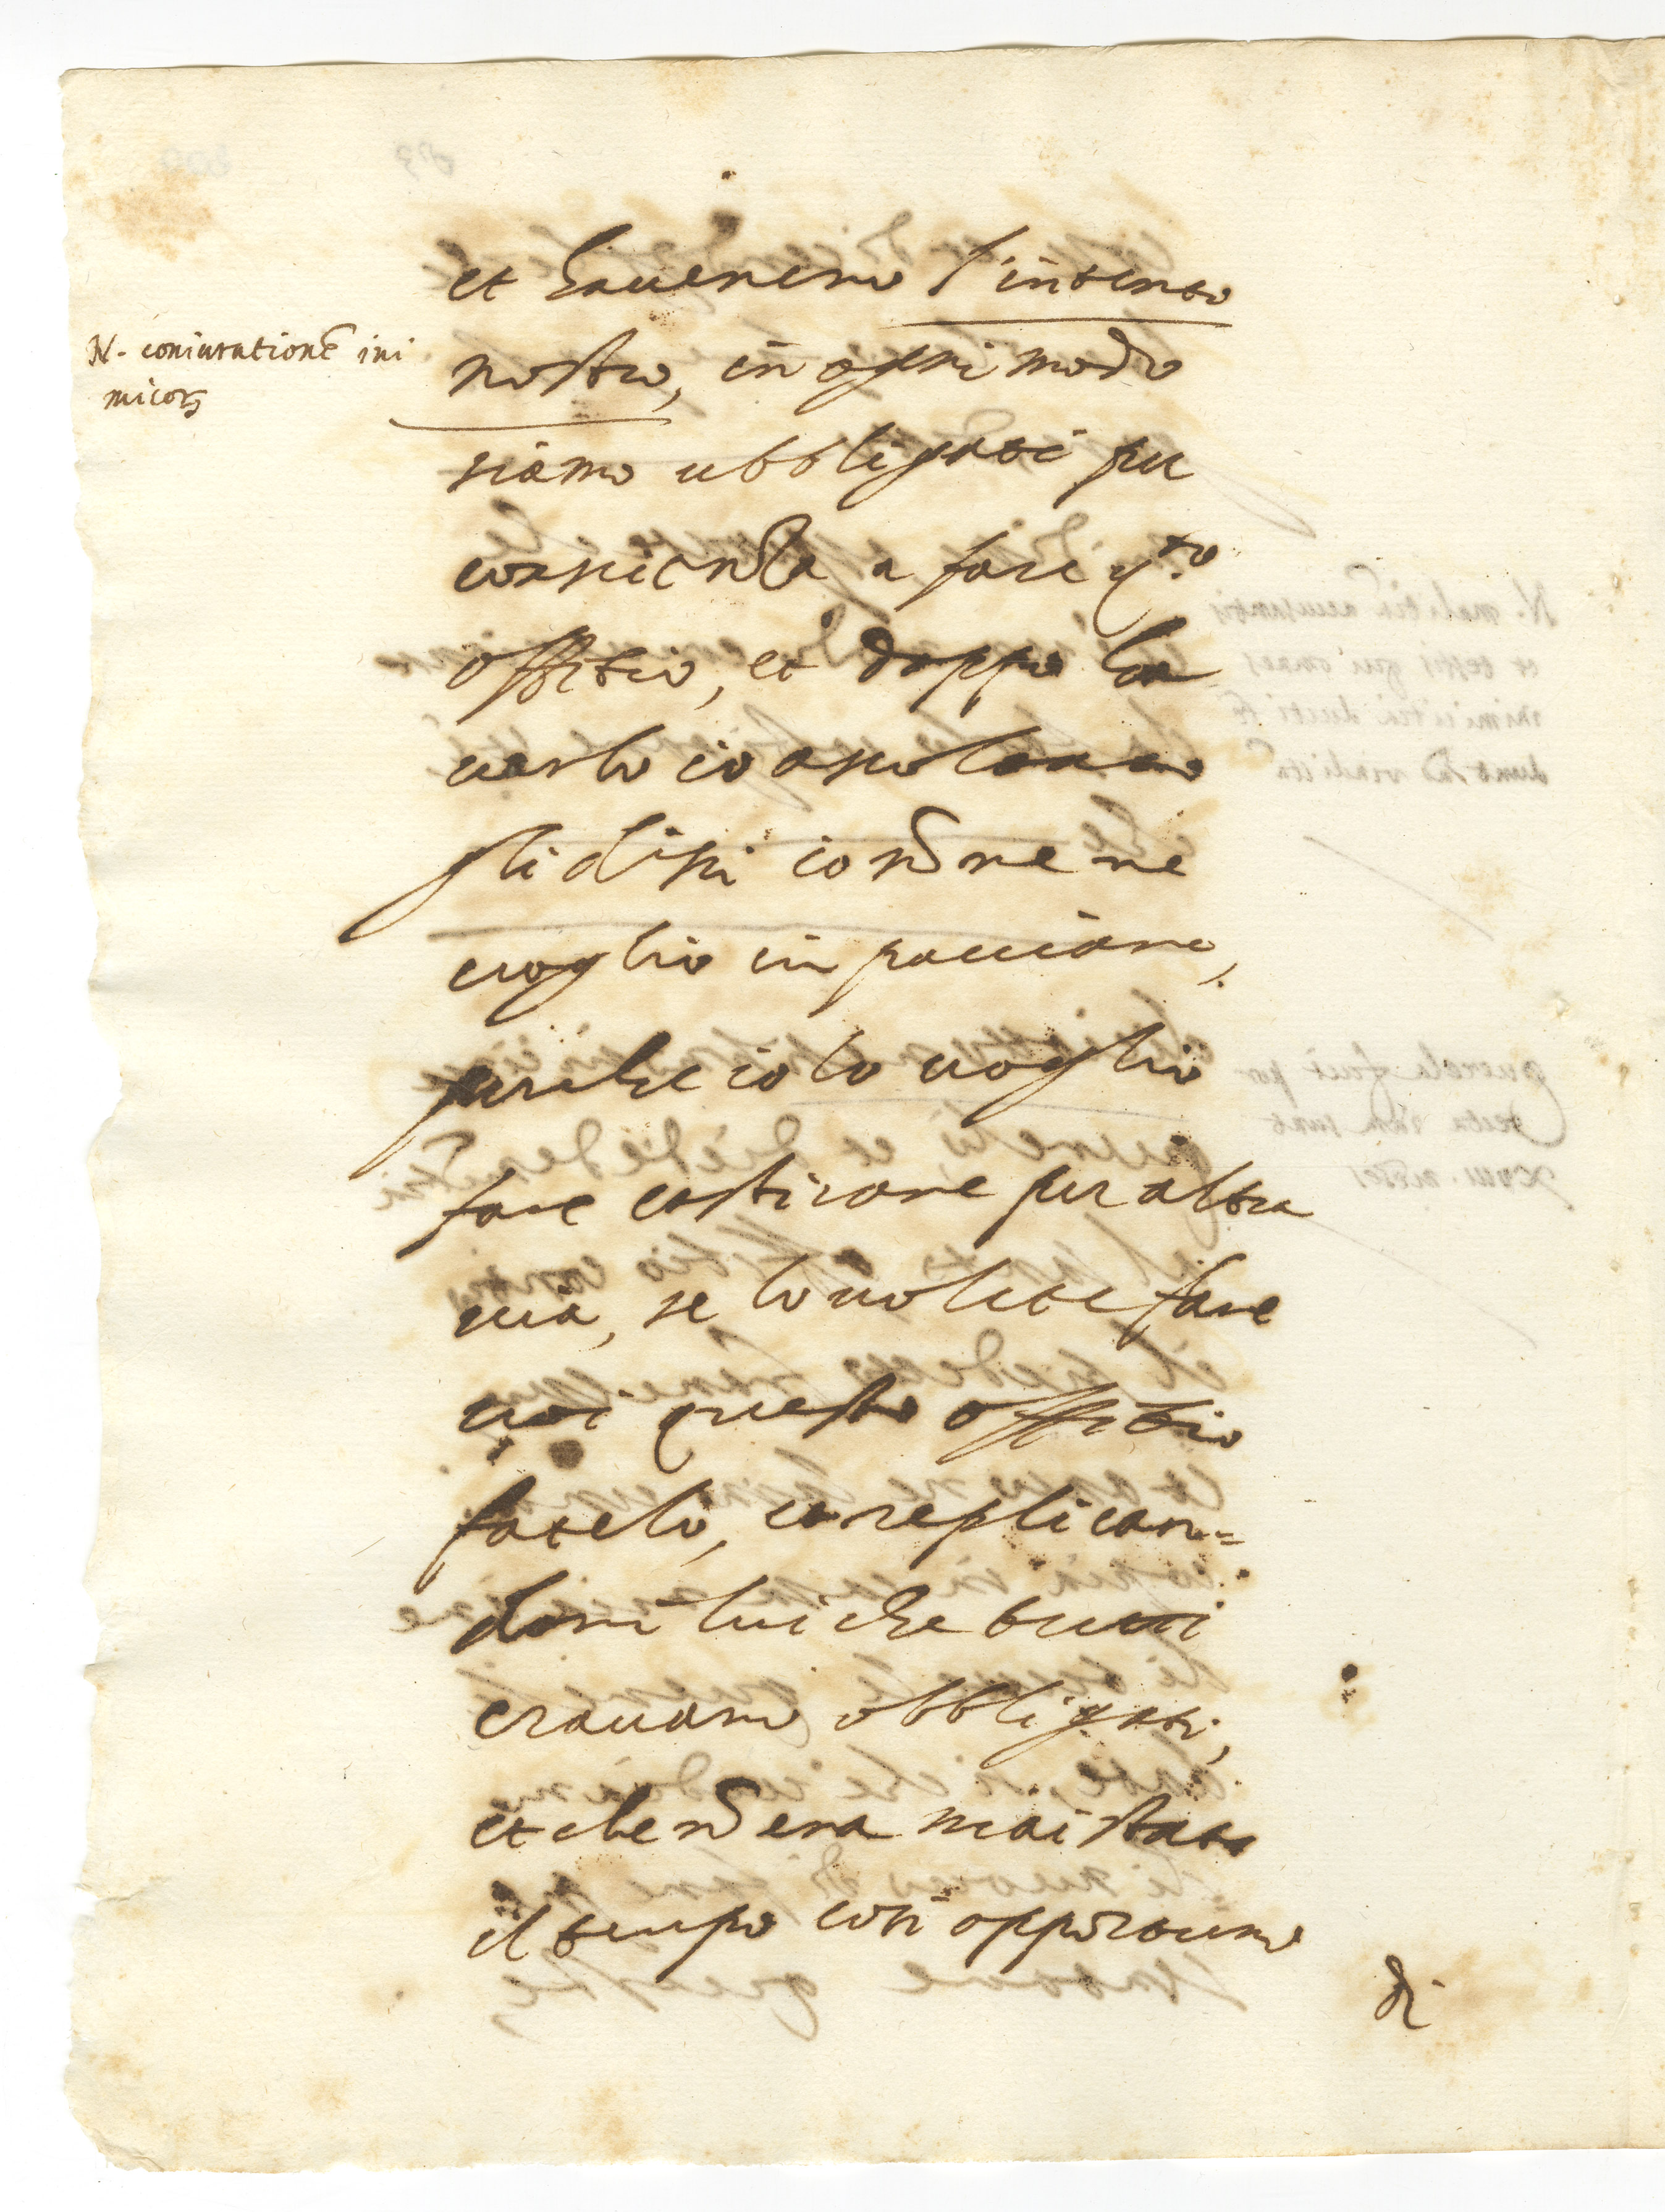 N. coniurationē ini
micorꝝ
et haueremo l'intento
nostro, in ogni modo
siamo ubbligati per
conscienza a fare q.to
offitio, et doppo ha
uerlo io ascoltato
gli dissi io nō me ne
uoglio inpacciare,
perche io lo uoglio
fare castigare per altra
uia, se lo uolete fare
uoi questo offitio
fatelo, et replican=
domi lui che tutti
erauamo obbligati,
et che nō era mai stato
il tempo così opportuno
di